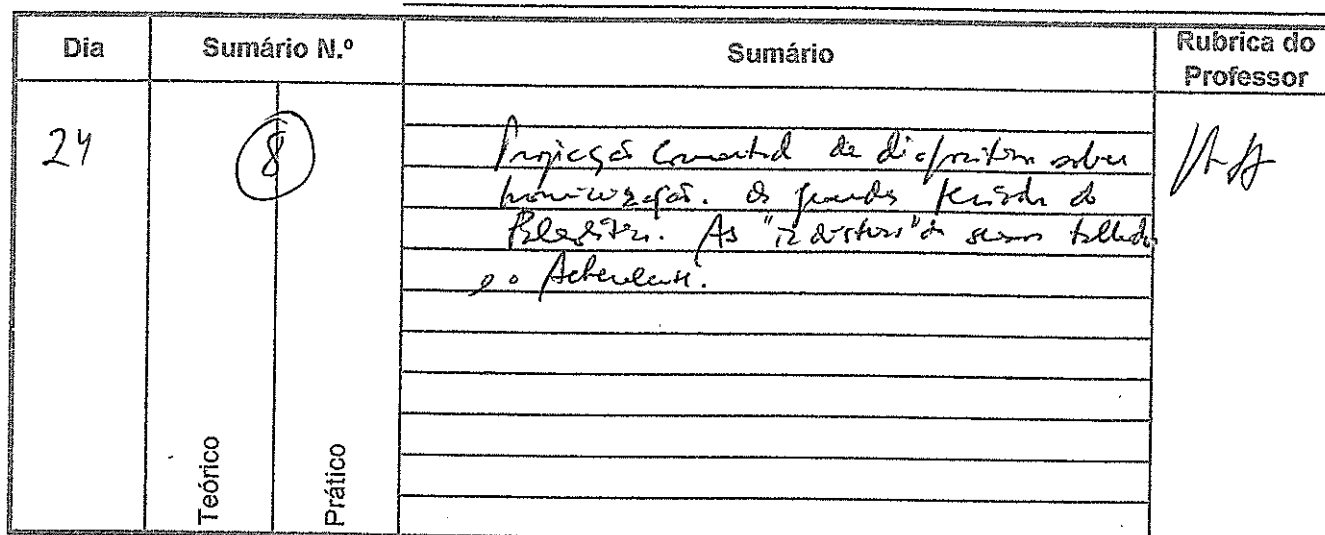 Dia
Sumário N.º
Sumário
Rubrica do
Professor
24
8
Projecção comentada de diapositivos sobre
hominização. Os grandes períodos do
Paleolítico. As "indústrias" de seixos talhados
e o Acheulense.
Teórico
Prático